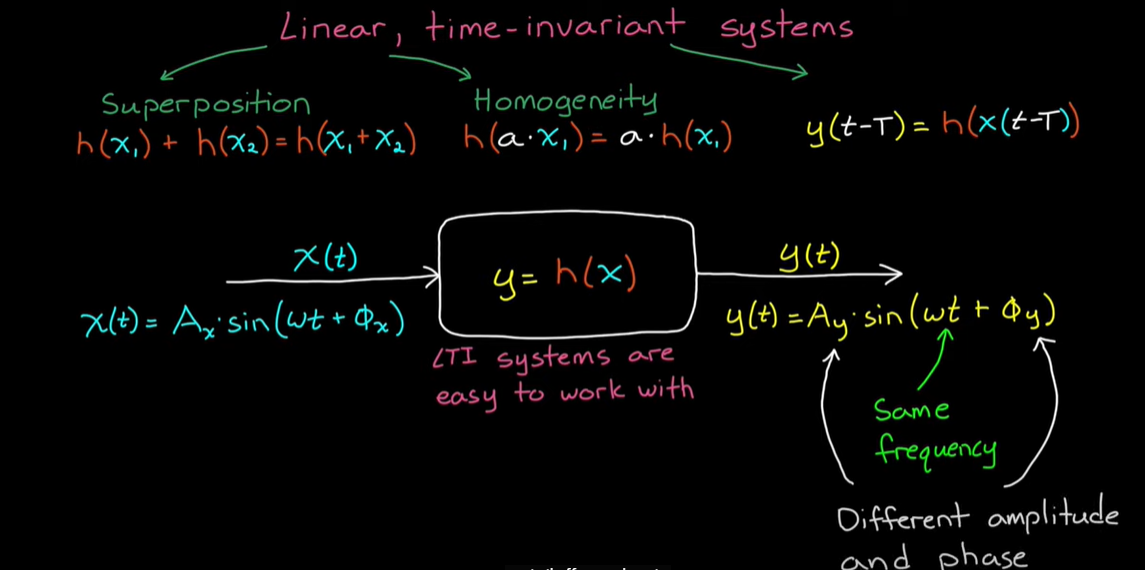 Linear, time-invariant systems
Superposition
h(x₁) + h(x₂) = h(x₁ + x₂)
Homogeneity
h(a·x₁) = a·h(x₁)
y(t-T) = h(x(t-T))
x(t)
x(t) = Aₓ·sin(ωt + Φₓ)
y = h(x)
LTI systems are
easy to work with
y(t)
y(t) = Ay·sin(ωt + Φy)
Same
frequency
Different amplitude
and phase